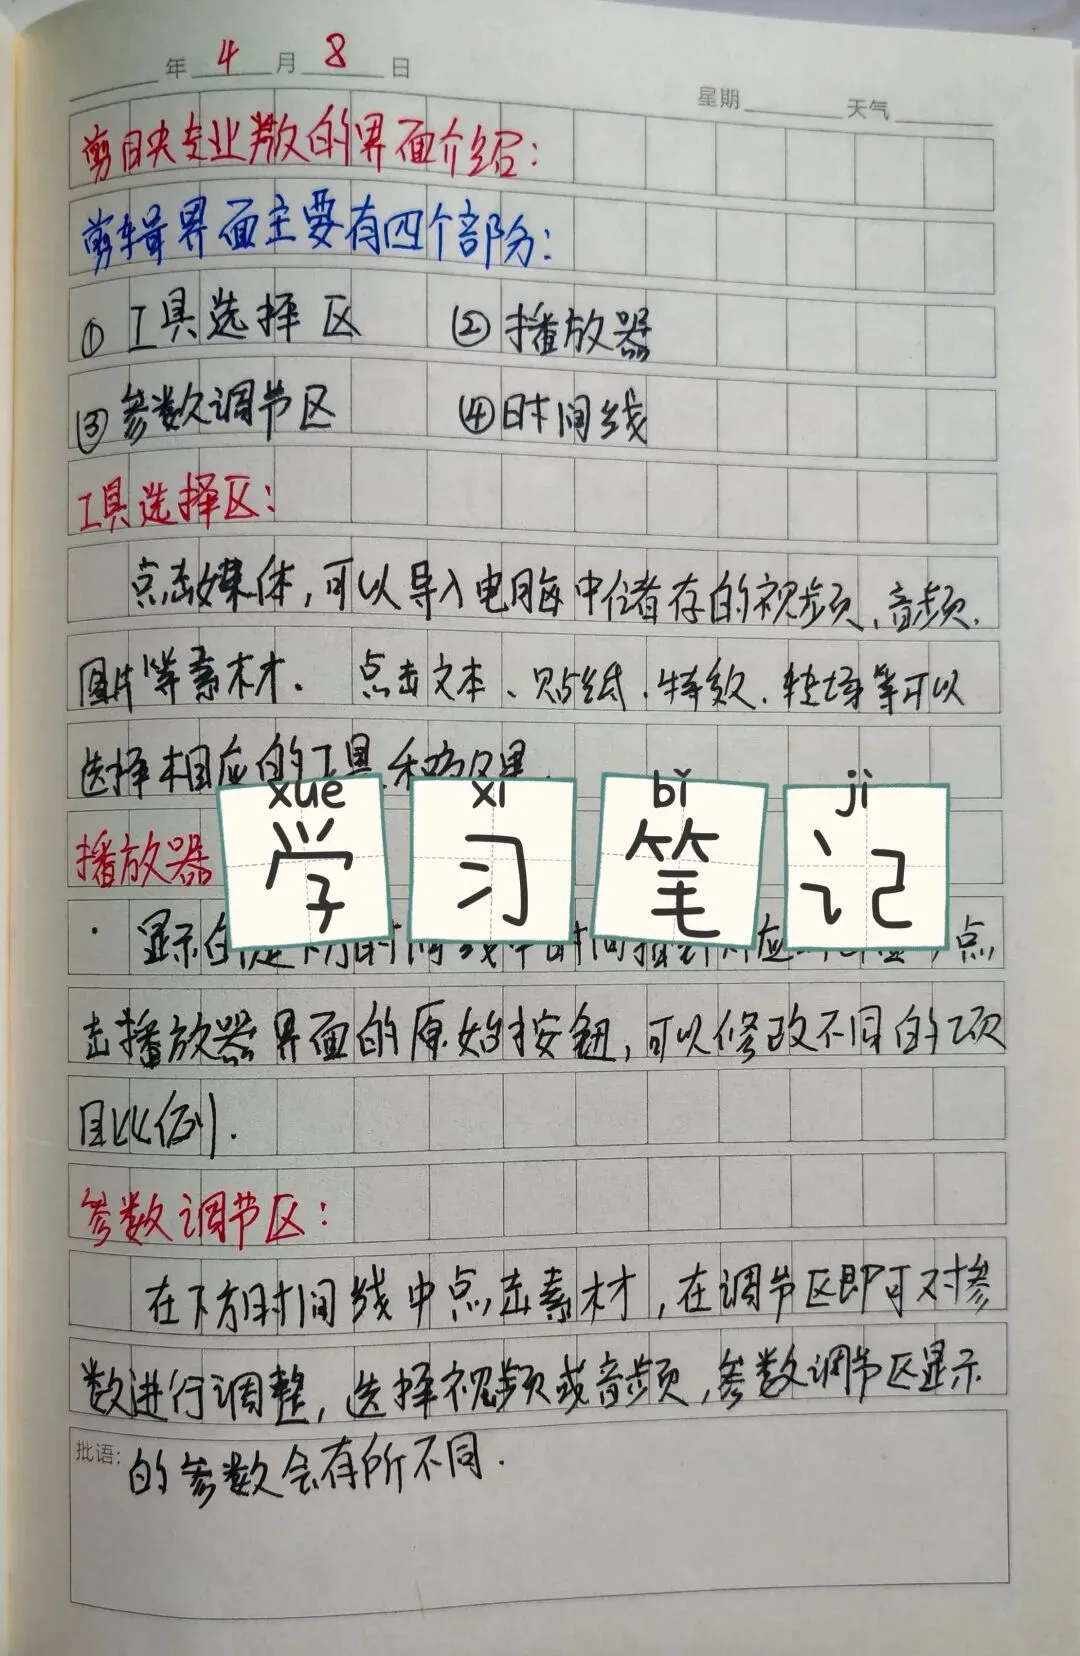 年 4 月 8 日
星期 天气
剪映专业版的界面介绍:
剪辑界面主要有四个部分:
① 工具选择区 ② 播放器
③ 参数调节区 ④ 时间线
工具选择区:
点击媒体,可以导入电脑中储存的视频、音频、
图片等素材. 点击文本、贴纸、特效、转场等可以
选择相应的工具和效果.
xue xi bǐ jì
播放器
学 习 笔 记
显示的是下方时间线中时间指针对应 点
击播放器界面的原始按钮,可以修改不同的项
目比例.
参数调节区:
在下方时间线中点击素材,在调节区即可对参
数进行调整,选择视频或音频,参数调节区显示
批语: 的参数会有所不同.